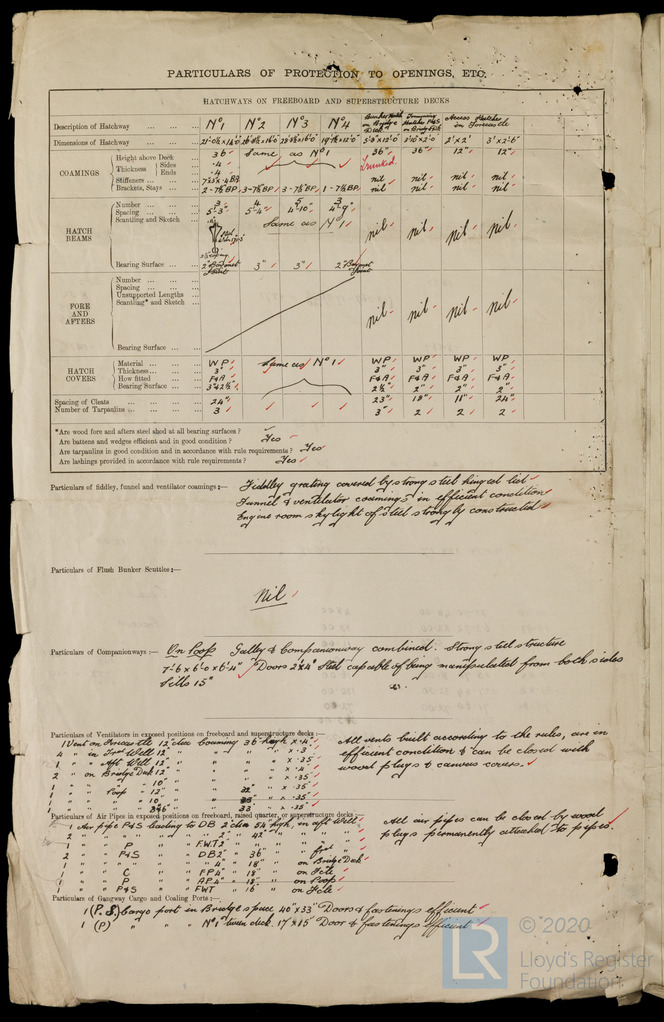 PARTICULARS OF PROTECTION TO OPENINGS, ETC.
HATCHWAYS ON FREEBOARD AND SUPERSTRUCTURE DECKS
Description of Hatchway Nº1 Nº2 Nº3 Nº4 Bunker Hatch on Bridge Deck Trimming Hatches P&S on Bridge Deck Access Hatches in Forecastle
Dimensions of Hatchway 2'x2' 3'x2'-6"
COAMINGS
Height above Deck 36 Same as Nº1 36" 36" 12" 12"
Thickness Sides .4 Trunked
Ends .4
Stiffeners nil nil nil nil
Brackets, Stays 2-7/8BP 3-7/8BP 3-7/8BP 1-7/8BP nil nil nil nil
HATCH BEAMS
Number 3 4 5 3
Spacing 5'-3" 5'-4" 4'-10" 4'-9"
Scantling and Sketch Same as Nº1 nil nil nil nil
Bearing Surface 2" Bayonet Joint 3" 3" 2" Bayonet Joint
FORE AND AFTERS
Number
Spacing
Unsupported Lengths
Scantling* and Sketch nil nil nil nil
Bearing Surface
HATCH COVERS
Material WP Same as Nº1 WP WP WP WP
Thickness 3" 3" 3" 3" 3"
How fitted F&A F&A F&A F&A F&A
Bearing Surface 3"&2½" 2½" 2" 2" 2"
Spacing of Cleats 24" 23" 18" 18" 24"
Number of Tarpaulins 3 3 2 2 2
*Are wood fore and afters steel shod at all bearing surfaces? –
Are battens and wedges efficient and in good condition? Yes
Are tarpaulins in good condition and in accordance with rule requirements? Yes
Are lashings provided in accordance with rule requirements? Yes
Particulars of fiddley, funnel and ventilator coamings:— Fiddley grating covered by strong steel hinged lids
Funnel & ventilator coamings in efficient condition
Engine room skylight of steel strongly constructed
Particulars of Flush Bunker Scuttles:—
Nil
Particulars of Companionways:— On Poop Galley & Companionway combined. Strong steel structure
7'-6 x 6'-0 x 6'-4" Doors 2'x4' Steel capable of being manipulated from both sides
Sills 15"
Particulars of Ventilators in exposed positions on freeboard and superstructure decks:—
1 Vent on Forecastle 12" dia coaming 36" high x .4"
4 " in Ford Well 12" " " " x .3"
" " Aft Well 12" " " " x .35"
2 " on Bridge Deck 12" " " " x .4"
" " " 10" " " " x .35"
" " Poop 12" " 32" " x .35"
" " " 10" " " x .35"
" " " " 33" " x .35"
All vents built according to the rules, are in
efficient condition & can be closed with
wood plugs & canvas covers.
Particulars of Air Pipes in exposed positions on freeboard, raised quarter, or superstructure decks:—
1 Air pipe P&S leading to DB 2" dia 54" high, in aft Well
2 " " " " 2" 42" " "
1 " P " F.W.T 2" " " "
2 " P&S " DB 2" 36" " ford "
" " " " 4" 18" " on Bridge Deck
" " C " FP 4" 18" " on Fcle
" " P " AP 4" 18" " on Poop
1 " P&S " FWT 16" " on Fcle
All air pipes can be closed by wood
plugs permanently attached to pipes.
Particulars of Gangway Cargo and Coaling Ports:—
1 (P.S.) Cargo port in Bridge space 40" x 33" Doors & fastenings efficient
1 (P) " " " Nº1 tween deck. 17" x 15" Door & fastenings efficient
© 2020
LR
Lloyd's Register
Foundation